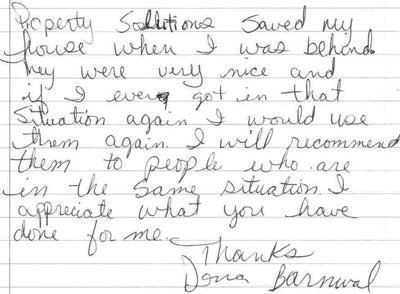 Property Solutions saved my
house when I was behind.
They were very nice and
if I ever got in that
situation again I would use
them again. I will recommend
them to people who are
in the same situation. I
appreciate what you have
done for me.
Thanks
Barnwal